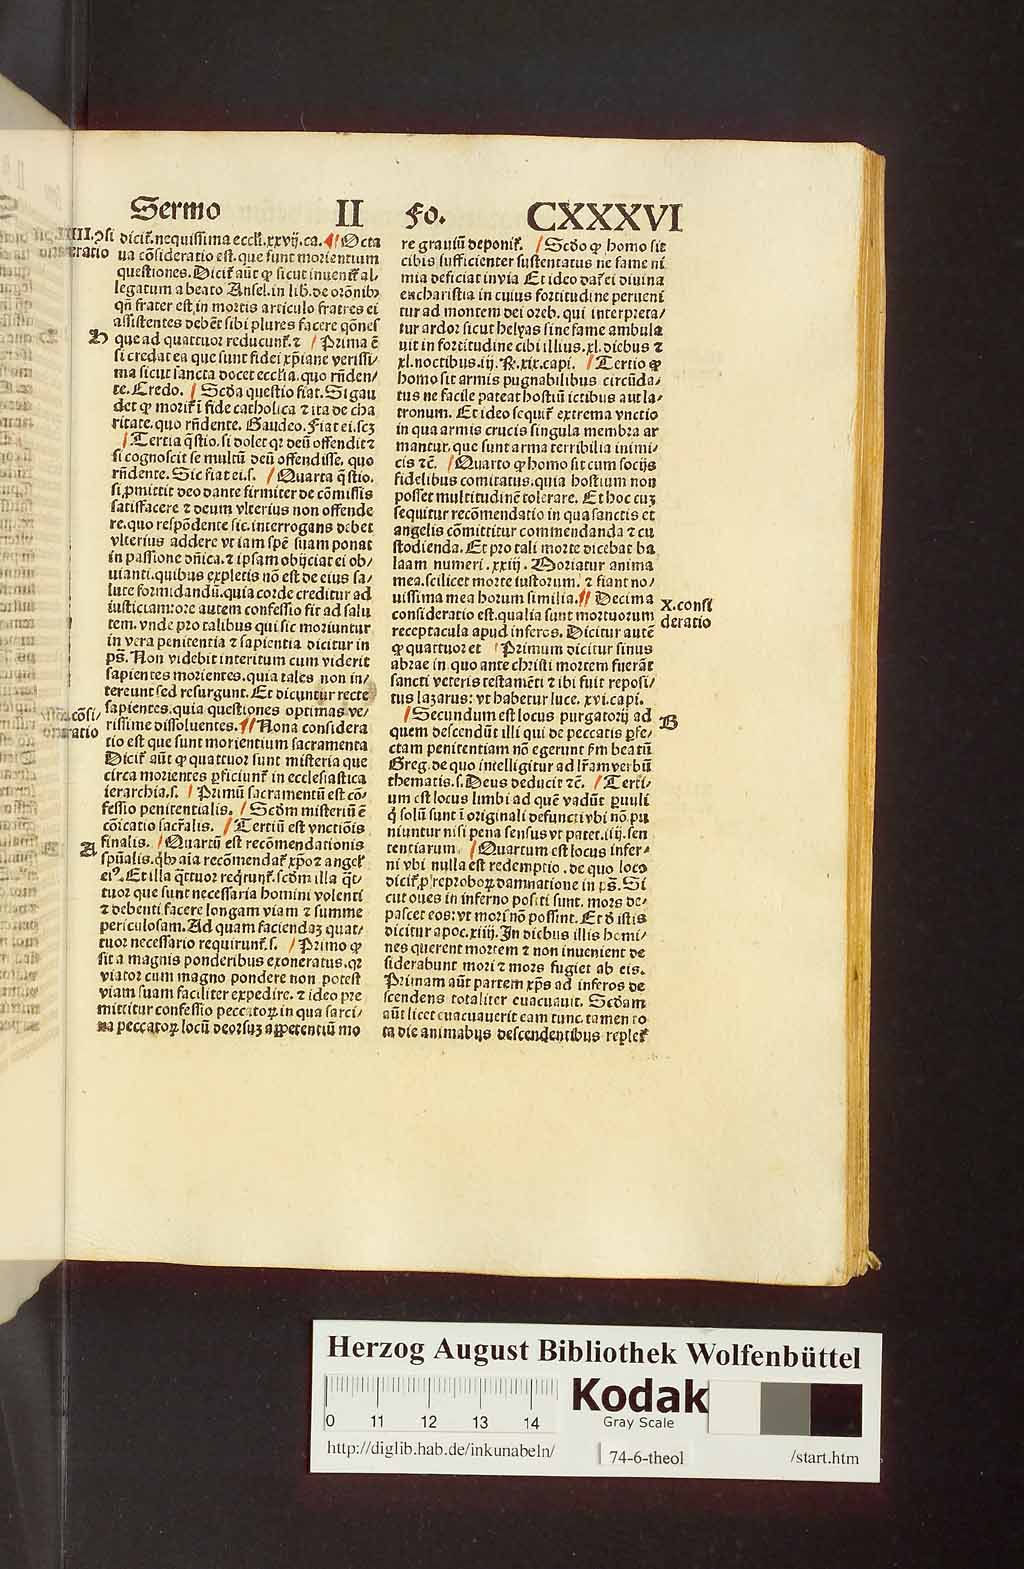 Sermo II Fo. CXXXVI
IIII.ↄsi
deratio
dicit᷑. nequissima eccli. xxvij. ca. ¶ Octa
ua cōsideratio est. que sunt morientium
questiones. Dicit᷑ aūt ꝙ sicut inuenit᷑ al⸗
legatum a beato Ansel. in lib. de orōnibꝫ
qn̄ frater est, in mortis articulo fratres ei
assistentes debēt sibi plures facere qōnes
que ad quattuor reducunt᷑. ⁊ / Prima ē
si credat ea que sunt fidei xp̄iane verissi⸗
ma sicut sancta docet eccl̄ia. quo rn̄den⸗
te. Credo. / Scďa questio fiat. Si gau
det ꝙ morit᷑ ī fide catholica ⁊ ita de cha
ritate. quo rn̄dente. Gaudeo. Fiat ei. scꝫ
/ Tertia q̄stio. si dolet qꝛ deū offendit ⁊
si cognoscit se multū deū offendisse. quo
rn̄dente. Sic fiat ei. s. / Quarta q̄stio.
si ꝓmittit deo dante firmiter de cōmissis
satisfacere ⁊ deum vlterius non offende
re. quo respōdente sic. interrogans debet
vlterius addere vt iam spē suam ponat
in passione dn̄ica. ⁊ ipsam obijciat ei ob⸗
uianti. quibus expletis nō est de eius sa⸗
lute formidandū. quia corde creditur ad
iusticiam: ore autem confessio fit ad salu
tem. vnde pro talibus qui sic moriuntur
in vera penitentia ⁊ sapientia dicitur in
ps̄. Non videbit interitum cum viderit
sapientes morientes. quia tales non in⸗
tereunt sed resurgunt. Et dicuntur recte
sapientes. quia questiones optimas ve⸗
rissime dissoluentes. ¶ Nona considera
tio est que sunt morientium sacramenta
Dicit᷑ aūt ꝙ quattuor sunt misteria que
circa morientes ꝑficiunt᷑ in ecclesiastica
ierarchia. s. / Primū sacramentū est cō⸗
fessio penitentialis. / Scďm misteriū ē
cōicatio sacr̄alis. / Tertiū est vnctiōis
finalis. / Quartū est recōmendationis
spūalis. qͣ aīa recōmendat᷑ xp̄o ⁊ angel᷑
eiꝰ. Et illa q̄ttuor reqͥrunt᷑. scďm illa q̄t⸗
tuor que sunt necessaria homini volenti
⁊ debenti facere longam viam ⁊ summe
periculosam. Ad quam faciendaꝫ quat⸗
tuor necessario requirunt᷑. s. / Primo ꝙ
sit a magnis ponderibus exoneratus. qꝛ
viator cum magno pondere non potest
viam suam faciliter expedire. ⁊ ideo pre
mittitur confessio peccatoꝝ in qua sarci⸗
na peccatoꝝ locū deorsuꝫ appetentiū mo
cōsi⸗
ratio
A
re grauiū deponit᷑. / Scďo ꝙ homo sit
cibis sufficienter sustentatus ne fame ni
mia deficiat in via Et ideo dat᷑ ei diuina
eucharistia in cuius fortitudine perueni
tur ad montem dei oreb. qui interpreta⸗
tur ardor sicut helyas sine fame ambula
uit in fortitudine cibi illius. xl. diebus ⁊
xl. noctibus. iij. R̄. xix. capi. / Tertio ꝙ
homo sit armis pugnabilibus circūda⸗
tus ne facile pateat hostiū ictibus aut la⸗
tronum. Et ideo sequit᷑ extrema vnctio
in qua armis crucis singula membra ar
mantur. que sunt arma terribilia inimi⸗
cis ⁊c̄. / Quarto ꝙ homo sit cum socijs
fidelibus comitatus. quia hostium non
posset multitudinē tolerare. Et hoc euꝫ
sequitur recōmendatio in qua sanctis et
angelis cōmittitur commendanda ⁊ cu
stodienda. Et pro tali morte dicebat ba
laam numeri. xxiij. Moriatur anima
mea. scilicet morte iustorum. ⁊ fiant no⸗
uissima mea horum similia. ¶ Decima
consideratio est. qualia sunt mortuorum
receptacula apud inferos. Dicitur autē
ꝙ quattuor et / Primum dicitur sinus
abrae in quo ante christi mortem fuerāt
sancti veteris testamēti ⁊ ibi fuit reposi⸗
tus lazarus: vt habetur luce. xvi. capi.
/ Secundum est locus purgatorij ad
quem descendūt illi qui de peccatis ꝑfe⸗
ctam penitentiam nō egerunt ẜm beatū
Greg. de quo intelligitur ad lr̄am verbū
thematis. s. Deus deducit ⁊c̄. / Terti⸗
um est locus limbi ad quē vadūt ꝑuuli
qͥ solū sunt ī originali defuncti vbi nō pu
niuntur nisi pena sensus vt patet. iiij. sen
tentiarum / Quartum est locus infer⸗
ni vbi nulla est redemptio. de quo loco
dicit᷑ ꝓ reproboꝝ damnatione in ps̄. Si
cut oues in inferno positi sunt. mors de⸗
pascet eos: vt mori nō possint. Et ď istis
dicitur apoc. xiiij. In diebus illis homi⸗
nes querent mortem ⁊ non inuenient de
siderabunt mori ⁊ mors fugiet ab eis.
Primam aūt partem xp̄s ad inferos de
scendens totaliter euacuauit. Scďam
aūt licet euacuauerit eam tunc. tamen to
ta die animabus descendentibus replet᷑
X. consi
deratio
B
Herzog August Bibliothek Wolfenbüttel
0 11 12 13 14
Kodak
Gray Scale
http://diglib.hab.de/inkunabeln/ 74-6-theol /start.htm